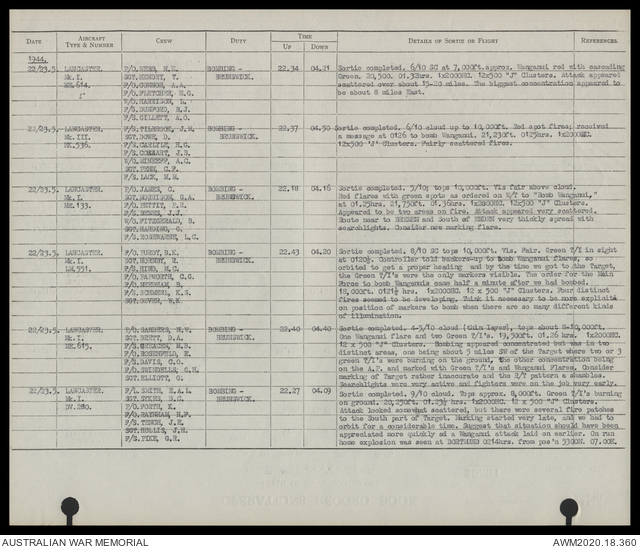 DATE AIRCRAFT TYPE & NUMBER CREW DUTY TIME UP DOWN DETAILS OF SORTIE OR FLIGHT REFERENCES.
1944.
22/23.5. LANCASTER. BOMBING - 22.34 04.21 Sortie completed. 6/10 SC at 7,000ft.approx. Wanganui red with cascading
Mk.I. SGT.HENDRY, T. BRUNSWICK. Green. 20,500. 01.32hrs. 1x2000HC. 12x500 "J" Clusters. Attack appeared
F/O.CONNOR, A.A. scattered over about 15-20 miles. The biggest concentration appeared to
F/O.FLETCHER, H.G. be about 8 miles East.
W/O.HARRISON, L.
F/S.DUNFORD, B.J.
F/S.GILLETT, A.O.
22/23.5. LANCASTER. F/S.TILBROOK, J.M. BOMBING - 22.37 04.50 Sortie completed. 6/10 cloud up to 10,000ft. Red spot fires; received
Mk.III. SGT.DOWE, D. BRUNSWICK. a message at 0126 to bomb Wanganui. 21,230ft. 0125hrs. 1x2000HC.
F/S.CARLYLE, H.G. 12x500 'J' Clusters. Fairly scattered fires.
F/S.LACK, M.H.
22/23.5. LANCASTER. F/O.JAMES, C. BOMBING - 22.18 04.16 Sortie completed. 5/10; tops 10,000ft. Vis fair above cloud.
Mk.I. BRUNSWICK. Red flares with green spots as ordered on W/T to "Bomb Wanganui,"
F/O.PETTIT, R.H. at 01.25hrs. 21,750ft. 01.36hrs. 1x2000HC. 12x500 "J" Clusters.
Appeared to be two areas on fire. Attack appeared very scattered.
W/O.FITZGERALD, B. Route near to BREMEN and South of EMDEN very thickly spread with
SGT.HARDING, G. searchlights. Consider new marking flare.
F/S.ROSEWARNE, L.C.
22/23.5. LANCASTER. F/O.PURDY, B.K. BOMBING - 22.43 04.20 Sortie completed. 8/10 SC tops 10,000ft. Vis. Fair. Green T/I in sight
Mk.I. SGT.HORNBY, R. BRUNSWICK. at 0120½. Controller told backers-up to bomb Wanganui flares, so
LM.551. F/S.HIND, M.C. orbited to get a proper heading and by the time we got to the Target,
F/O.PAPWORTH, C.G. the Green T/I's were the only markers visible. The order for the Main
F/O.NEEDHAM, B. Force to bomb Wanganuis came half a minute after we had bombed.
18,000ft. 0121½ hrs. 1x2000HC. 12 x 500 "J" Clusters. Four distinct
SGT.DEVER, W.K. fires seemed to be developing. Think it necessary to be more explicit
on position of markers to bomb when there are so many different kinds
of illumination.
22/23.5. LANCASTER. F/O.SANDERS, N.W. BOMBING - 22.40 04.40 Sortie completed. 4-5/10 cloud (thin layer), tops about 8-10,000ft.
Mk.I. SGT.BRETT, D.A. BRUNSWICK. One Wanganui flare and two Green T/I's. 19,500ft. 01.26 hrs. 1x2000HC.
ME.615. 12 x 500 "J" Clusters. Bombing appeared concentrated but was in two
F/O.ROSENFELD, E. distinct areas, one being about 5 miles SW of the Target where two or 3
F/S.DAVIS, C.O. green T/I's were burning on the ground, the other concentration being
F/O.SWINDELLS, G.H. on the A.P. and marked with Green T/I's and Wanganui Flares. Consider
SGT.ELLIOTT, G. marking of Target rather inaccurate and the Z/T pattern a shambles.
Searchlights were very active and fighters were on the job very early.
22/23.5. LANCASTER. P/L.SMITH, H.A.L. BOMBING - 22.27 04.09 Sortie completed. 9/10 cloud. Tops approx. 8,000ft. Green T/I's burning
Mk.I. SGT.SYKES, D.C. BRUNSWICK. on ground. 20,250ft. 01.23½ hrs. 1x2000HC. 12 x 500 "J" Clusters.
DV.280. F/O.FORTH, K. Attack looked somewhat scattered, but there were several fire patches
F/O.BATEMAN, H.F. to the South part of Target. Marking started very late, and we had to
F/S.TENCH, J.E. orbit for a considerable time. Suggest that situation should have been
SGT.HOLLIS, J.H. appreciated more quickly and a Wanganui attack laid on earlier. On run
F/S.PIKE, G.R. home explosion was seen at DORTMUND 0214hrs. from pos'n 5300N. 07.00E.
AUSTRALIAN WAR MEMORIAL AWM2020.18.360